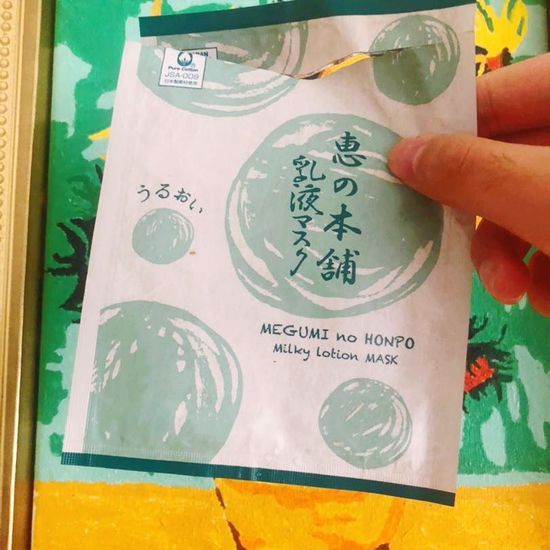 Pure Cotton
JSA-009
日本製素材使用
恵の本舗
乳液マスク
うるおい
MEGUMI no HONPO
Milky lotion MASK